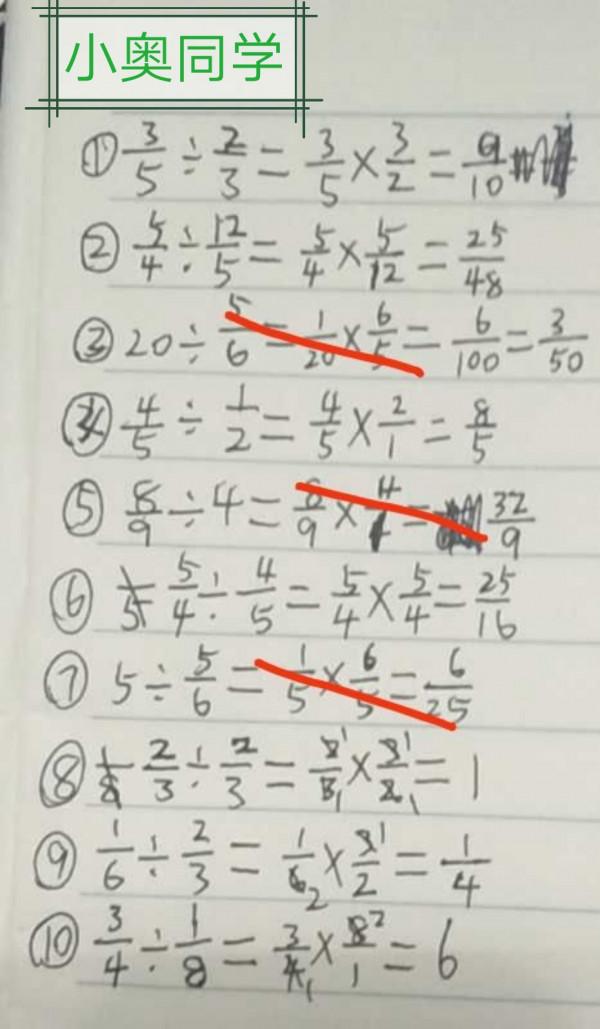 小奥同学
① 3/5 ÷ 2/3 = 3/5 × 3/2 = 9/10
② 5/4 ÷ 12/5 = 5/4 × 5/12 = 25/48
③ 20 ÷ 5/6 = 1/20 × 6/5 = 6/100 = 3/50
④ 4/5 ÷ 1/2 = 4/5 × 2/1 = 8/5
⑤ 8/9 ÷ 4 = 8/9 × 4/1 = 32/9
⑥ 5/4 ÷ 4/5 = 5/4 × 5/4 = 25/16
⑦ 5 ÷ 5/6 = 1/5 × 6/5 = 6/25
⑧ 2/3 ÷ 2/3 = 2/3 × 3/2 = 1
⑨ 1/6 ÷ 2/3 = 1/6 × 3/2 = 1/4
⑩ 3/4 ÷ 1/8 = 3/4 × 8/1 = 6